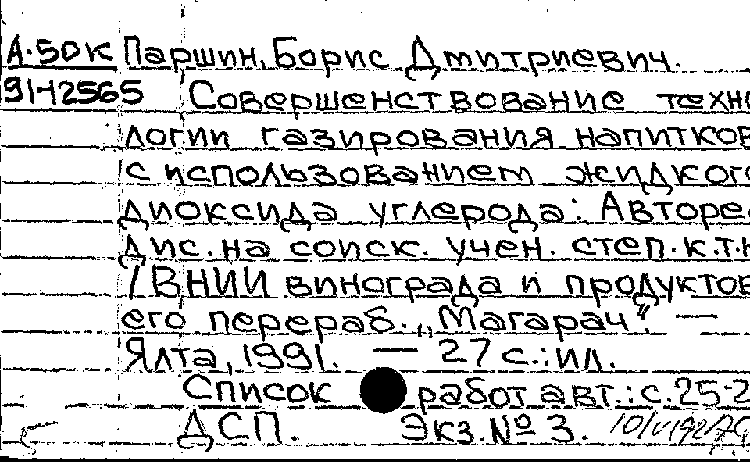 А-50К Паршин, Борис Дмитриевич.
91-12565 Совершенствование техно
логии газирования напитков
с использованием жидкого
диоксида углерода: Авторе
дис. на соиск. учен. степ. к.т.н
/ ВНИИ винограда и продуктов
его перераб. „Магарач". —
Ялта, 1991. — 27 с.: ил.
Список работ авт.: с. 25-2
ДСП. Экз. № 3.